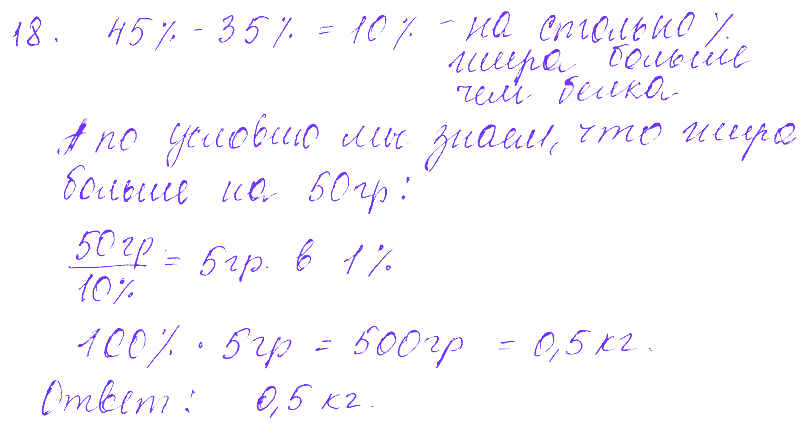 18. 45% - 35% = 10% - на столько %
жира больше
чем белка
А по условию мы знаем, что жира
больше на 50гр:
50гр
10%
= 5гр. в 1%
100% · 5гр = 500гр = 0,5 кг.
Ответ: 0,5 кг.